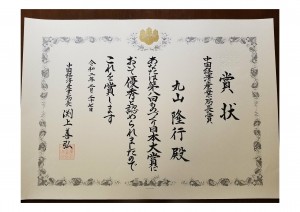 賞状
中国経済産業局長賞
丸山隆行 殿
あなたは第八回ものづくり日本大賞に
おいて優秀と認められましたので
これを賞します
令和二年一月二十七日
中国経済産業局長 渕上善弘